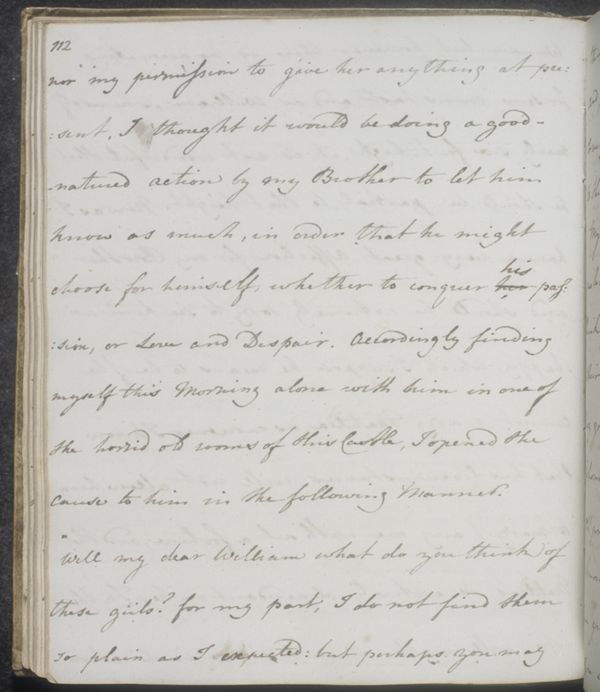 112
nor my permission to give her anything at pre:
:sent, I thought it would be doing a good-
-natured action by my Brother to let him
know as much, in order that he might
choose for himself, whether to conquer his pas:
:sion, or Love and Despair. Accordingly finding
myself this Morning alone with him in one of
the horrid old rooms of this Castle, I opened the
cause to him in the following Manner.
"Well my dear William what do you think of
these girls? for my part, I do not find them
so plain as I expected: but perhaps you may